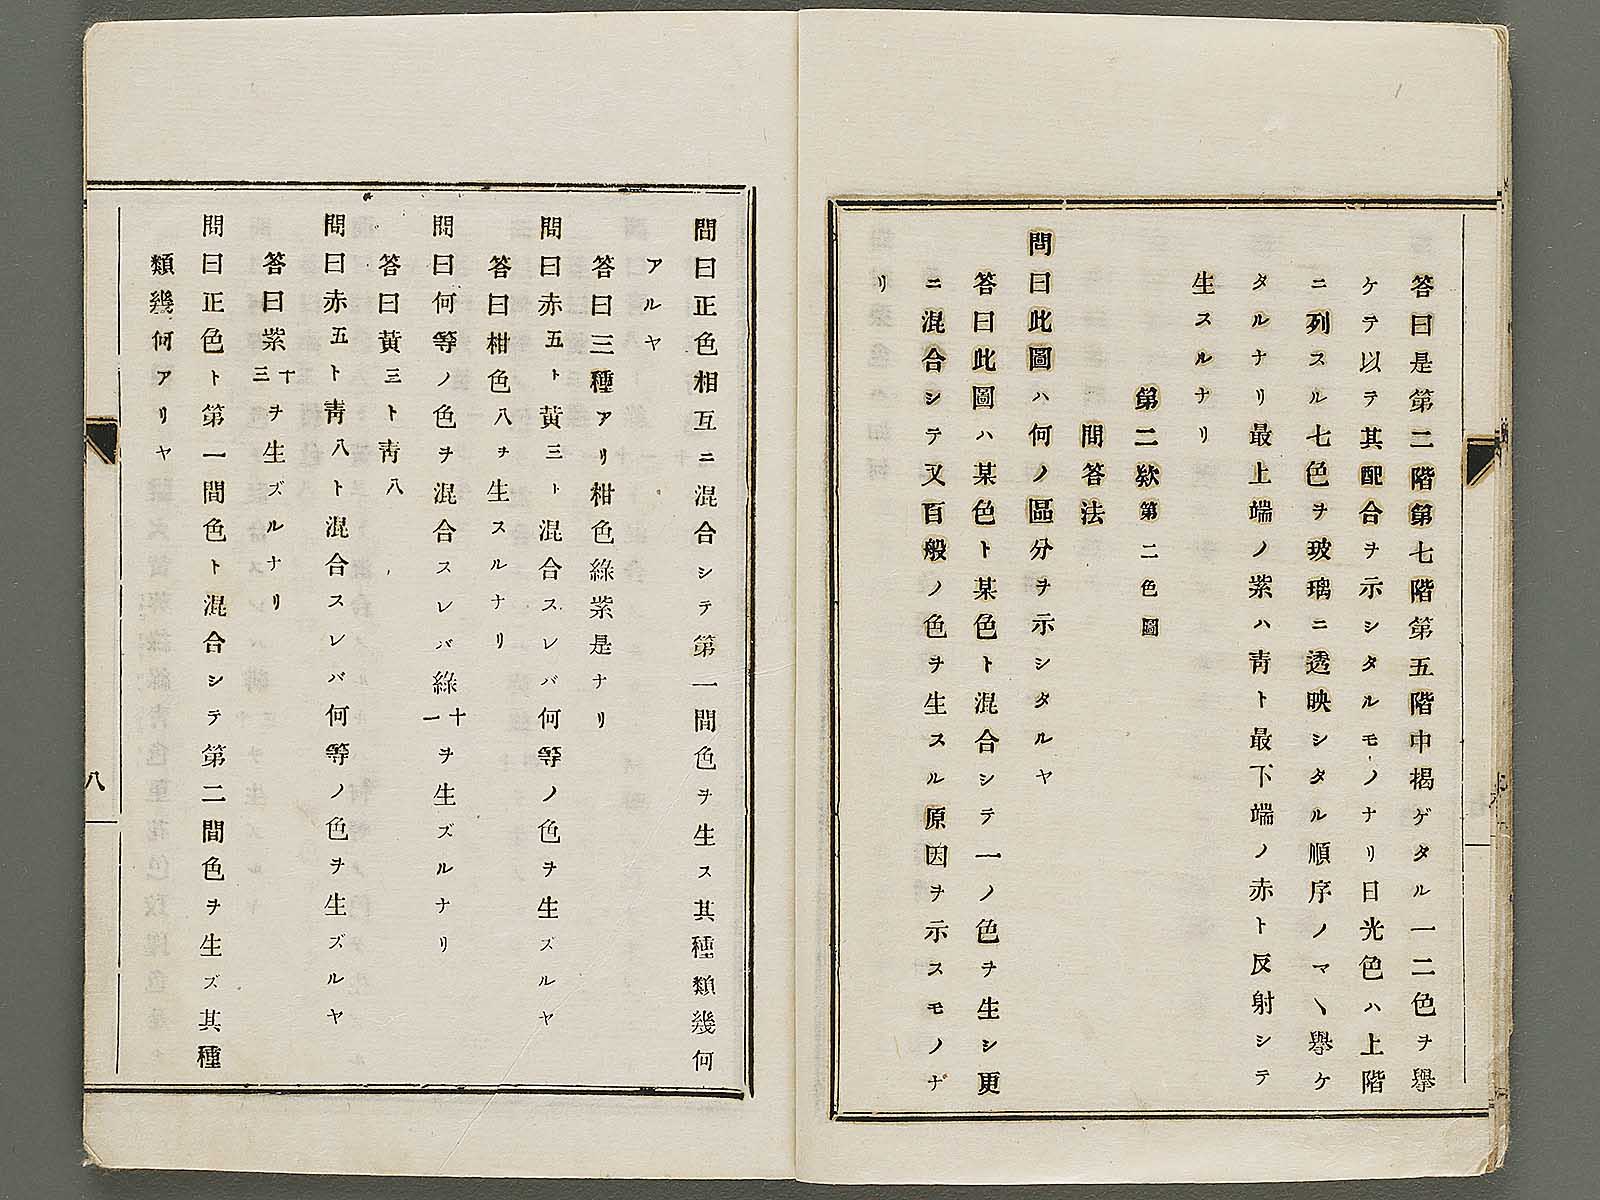 答曰是第二階第七階第五階中揭ゲタル一二色ヲ擧
ケテ以テ其配合ヲ示シタルモノナリ日光色ハ上階
ニ列スル七色ヲ玻璃ニ透映シタル順序ノマヽ擧ケ
タルナリ最上端ノ紫ハ靑ト最下端ノ赤ト反射シテ
生スルナリ
第二欵第二色圖
問答法
問曰此圖ハ何ノ區分ヲ示シタルヤ
答曰此圖ハ某色ト某色ト混合シテ一ノ色ヲ生シ更
ニ混合シテ又百般ノ色ヲ生スル原因ヲ示スモノナ
リ
問曰正色相互ニ混合シテ第一間色ヲ生ス其種類幾何
アルヤ
答曰三種アリ柑色綠紫是ナリ
問曰赤五ト黃三ト混合スレバ何等ノ色ヲ生ズルヤ
答曰柑色八ヲ生スルナリ
問曰何等ノ色ヲ混合スレバ綠十一ヲ生ズルナリ
答曰黃三ト靑八
問曰赤五ト靑八ト混合スレバ何等ノ色ヲ生ズルヤ
答曰紫十三ヲ生ズルナリ
問曰正色ト第一間色ト混合シテ第二間色ヲ生ズ其種
類幾何アリヤ
八